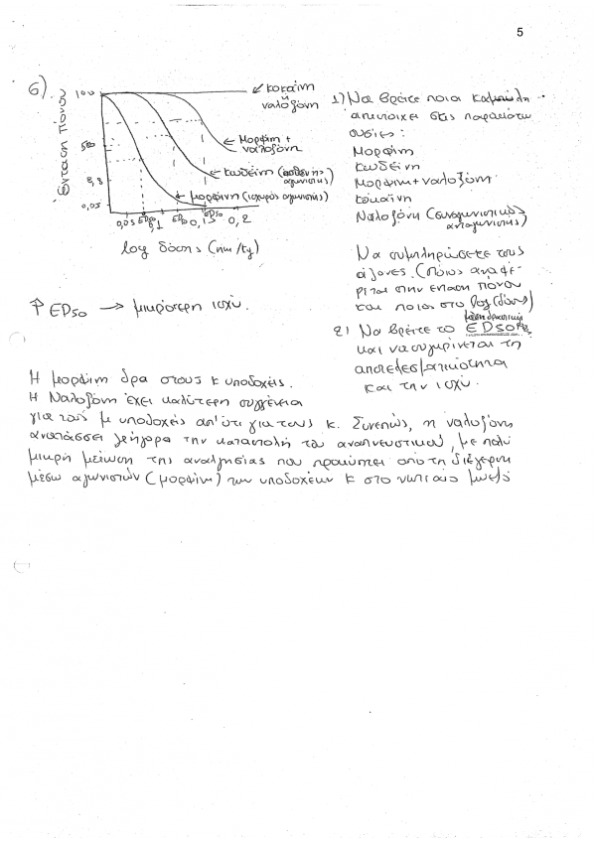 5
6).
Ένταση πόνου
100
50
0,05
0,05
ED50
0,1
ED50
0,15
ED50
0,2
log δόσης (nm/kg)
κοκαΐνη
ή
ναλοξόνη
Μορφίνη +
ναλοξόνη
κωδεΐνη (ασθενής
αγωνιστής)
μορφίνη (ισχυρός αγωνιστής)
↑ ED50 → μικρότερη ισχύ.
1) Να βρείτε ποια καμπύλη
αντιστοιχεί στις παρακάτω
ουσίες:
Μορφίνη
κωδεΐνη
Μορφίνη + ναλοξόνη
κοκαΐνη
Ναλοξόνη (συναγωνιστικός
ανταγωνιστής)
Να συμπληρώσετε τους
άξονες. (Ποιος αναφέ-
ρεται στην ένταση πόνου
και ποιος στο log(δόσης)
2) Να βρείτε το ED50
και να συγκρίνεται τη
αποτελεσματικότητα
και την ισχύ.
Η μορφίνη δρα στους κ υποδοχείς.
Η Ναλοξόνη έχει καλύτερη συγγένεια
για τους μ υποδοχείς απ' ότι για τους κ. Συνεπώς, η ναλοξόνη
ανατάσσει γρήγορα την καταστολή του αναπνευστικού, με πολύ
μικρή μείωση της αναλγησίας που προκύπτει από τη διέγερση
μέσω αγωνιστών (μορφίνη) των υποδοχέων κ στο νωτιαίο μυελό